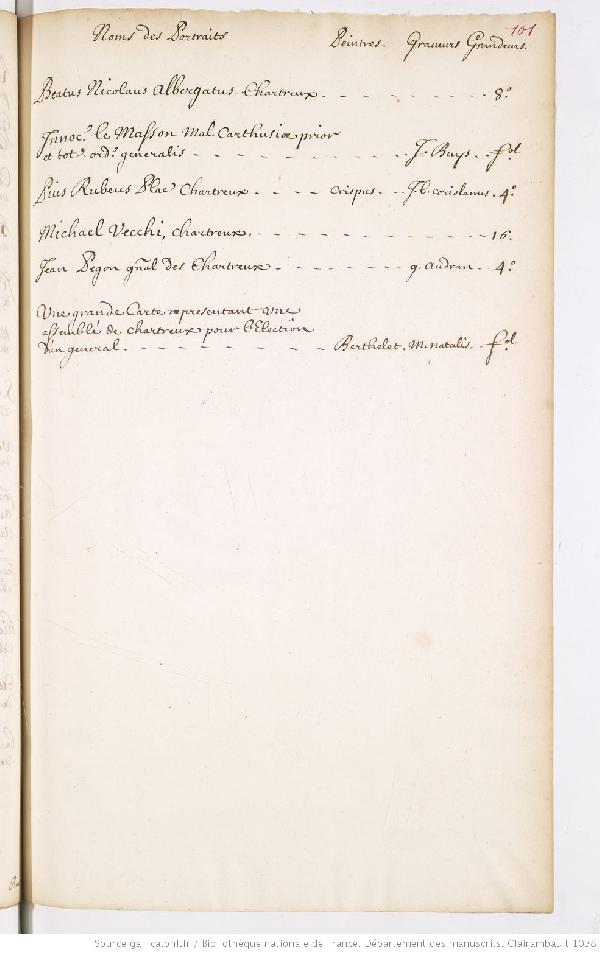 101
Noms des Portraits Peintres. Graueurs Grandeurs.
Beatus Nicolaus Albergatus Chartreux - - - - - - - - 8.º
Innoc.s le Masson Mal. Carthusiæ prior
et tot.s ord.s generalis - - - - - - - - J. Buys. - fol.
Pius Rubeus Plac Chartreux - - - - Crispus. - - J.B. coriolanus. 4.º
Michael Vecchi, Chartreux. - - - - - - - - - - - 16.
Jean Pegon gñal des Chartreux - - - - - - - g. audran. - 4.º
Vne grande Carte representant vne
assemblé de chartreux pour l'Election
d'un general. - - - - - - - - Berthelet. M. natalis. - fol.
Source gallica.bnf.fr / Bibliothèque nationale de France. Département des manuscrits. Clairambault 1038